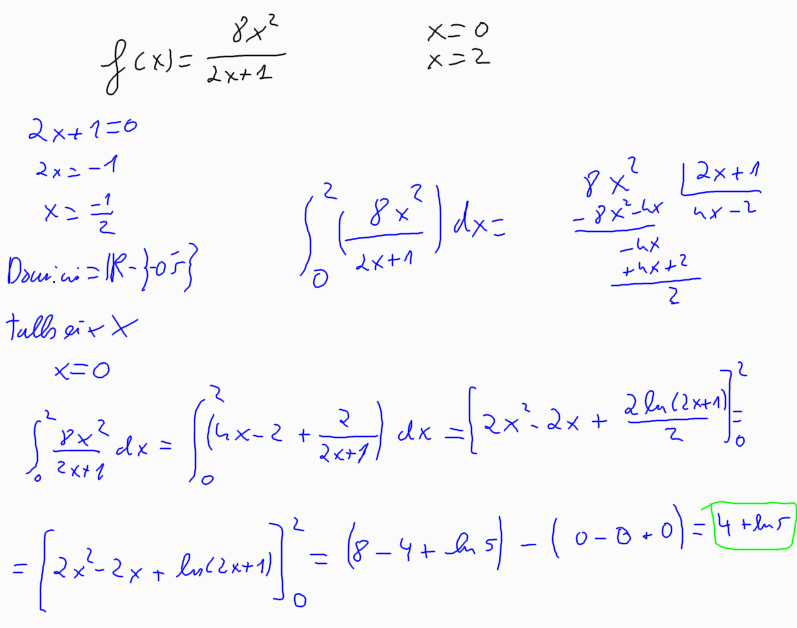 f(x) = 8x² / (2x+1)    x=0
x=2
2x+1=0
2x=-1
x = -1/2
Domini = ℝ - {-0'5}
talls eix X
x=0
∫₀² (8x² / (2x+1)) dx =
8x² | 2x+1
-8x²-4x    4x-2
-4x
+4x+2
2
∫₀² 8x² / (2x+1) dx = ∫₀² (4x-2 + 2/(2x+1)) dx = [2x²-2x + 2 ln(2x+1) / 2]₀² =
= [2x²-2x + ln(2x+1)]₀² = (8-4+ln 5) - (0-0+0) = 4+ln5